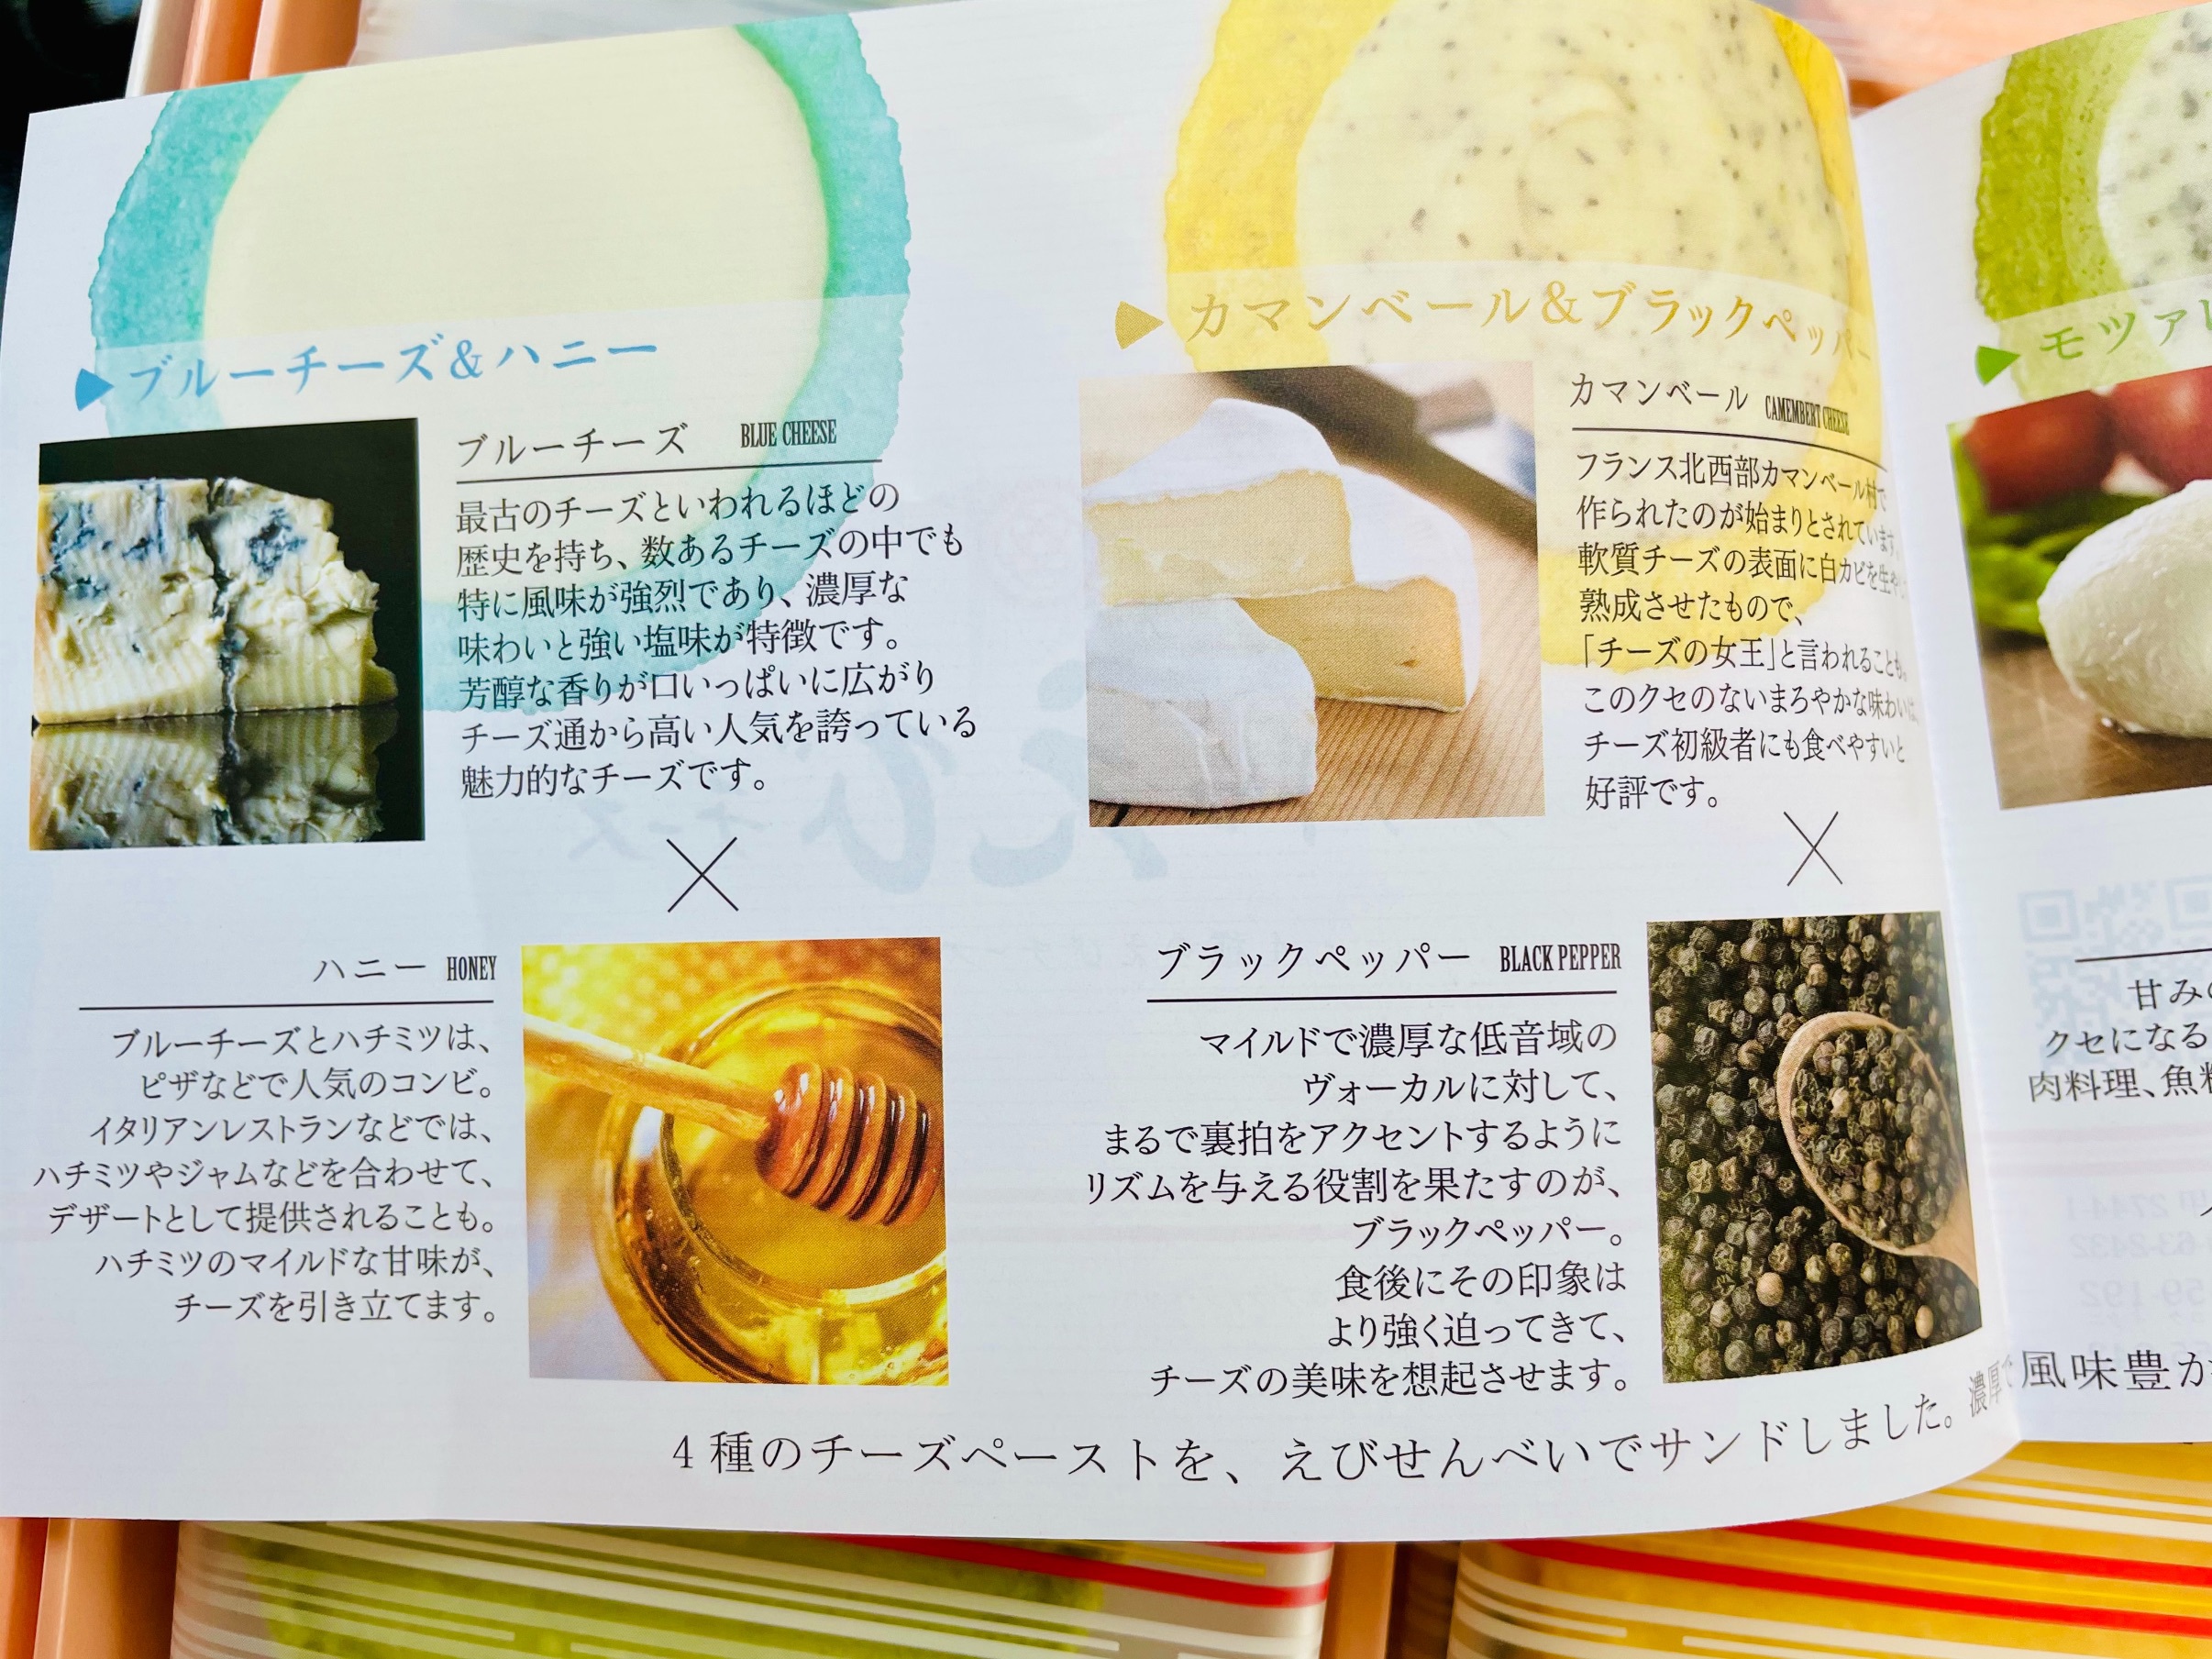 ブルーチーズ&ハニー
ブルーチーズ BLUE CHEESE
最古のチーズといわれるほどの
歴史を持ち、数あるチーズの中でも
特に風味が強烈であり、濃厚な
味わいと強い塩味が特徴です。
芳醇な香りが口いっぱいに広がり
チーズ通から高い人気を誇っている
魅力的なチーズです。
×
ハニー HONEY
ブルーチーズとハチミツは、
ピザなどで人気のコンビ。
イタリアンレストランなどでは、
ハチミツやジャムなどを合わせて、
デザートとして提供されることも。
ハチミツのマイルドな甘味が、
チーズを引き立てます。
カマンベール&ブラックペッパー
カマンベール CAMEMBERT CHEESE
フランス北西部カマンベール村で
作られたのが始まりとされています。
軟質チーズの表面に白カビを生や
熟成させたもので、
「チーズの女王」と言われることも。
このクセのないまろやかな味わいは
チーズ初級者にも食べやすいと
好評です。
×
ブラックペッパー BLACK PEPPER
マイルドで濃厚な低音域の
ヴォーカルに対して、
まるで裏拍をアクセントするように
リズムを与える役割を果たすのが、
ブラックペッパー。
食後にその印象は
より強く迫ってきて、
チーズの美味を想起させます。
モツァ
甘み
クセになる
肉料理、魚
4種のチーズペーストを、えびせんべいでサンドしました。濃厚で風味豊か